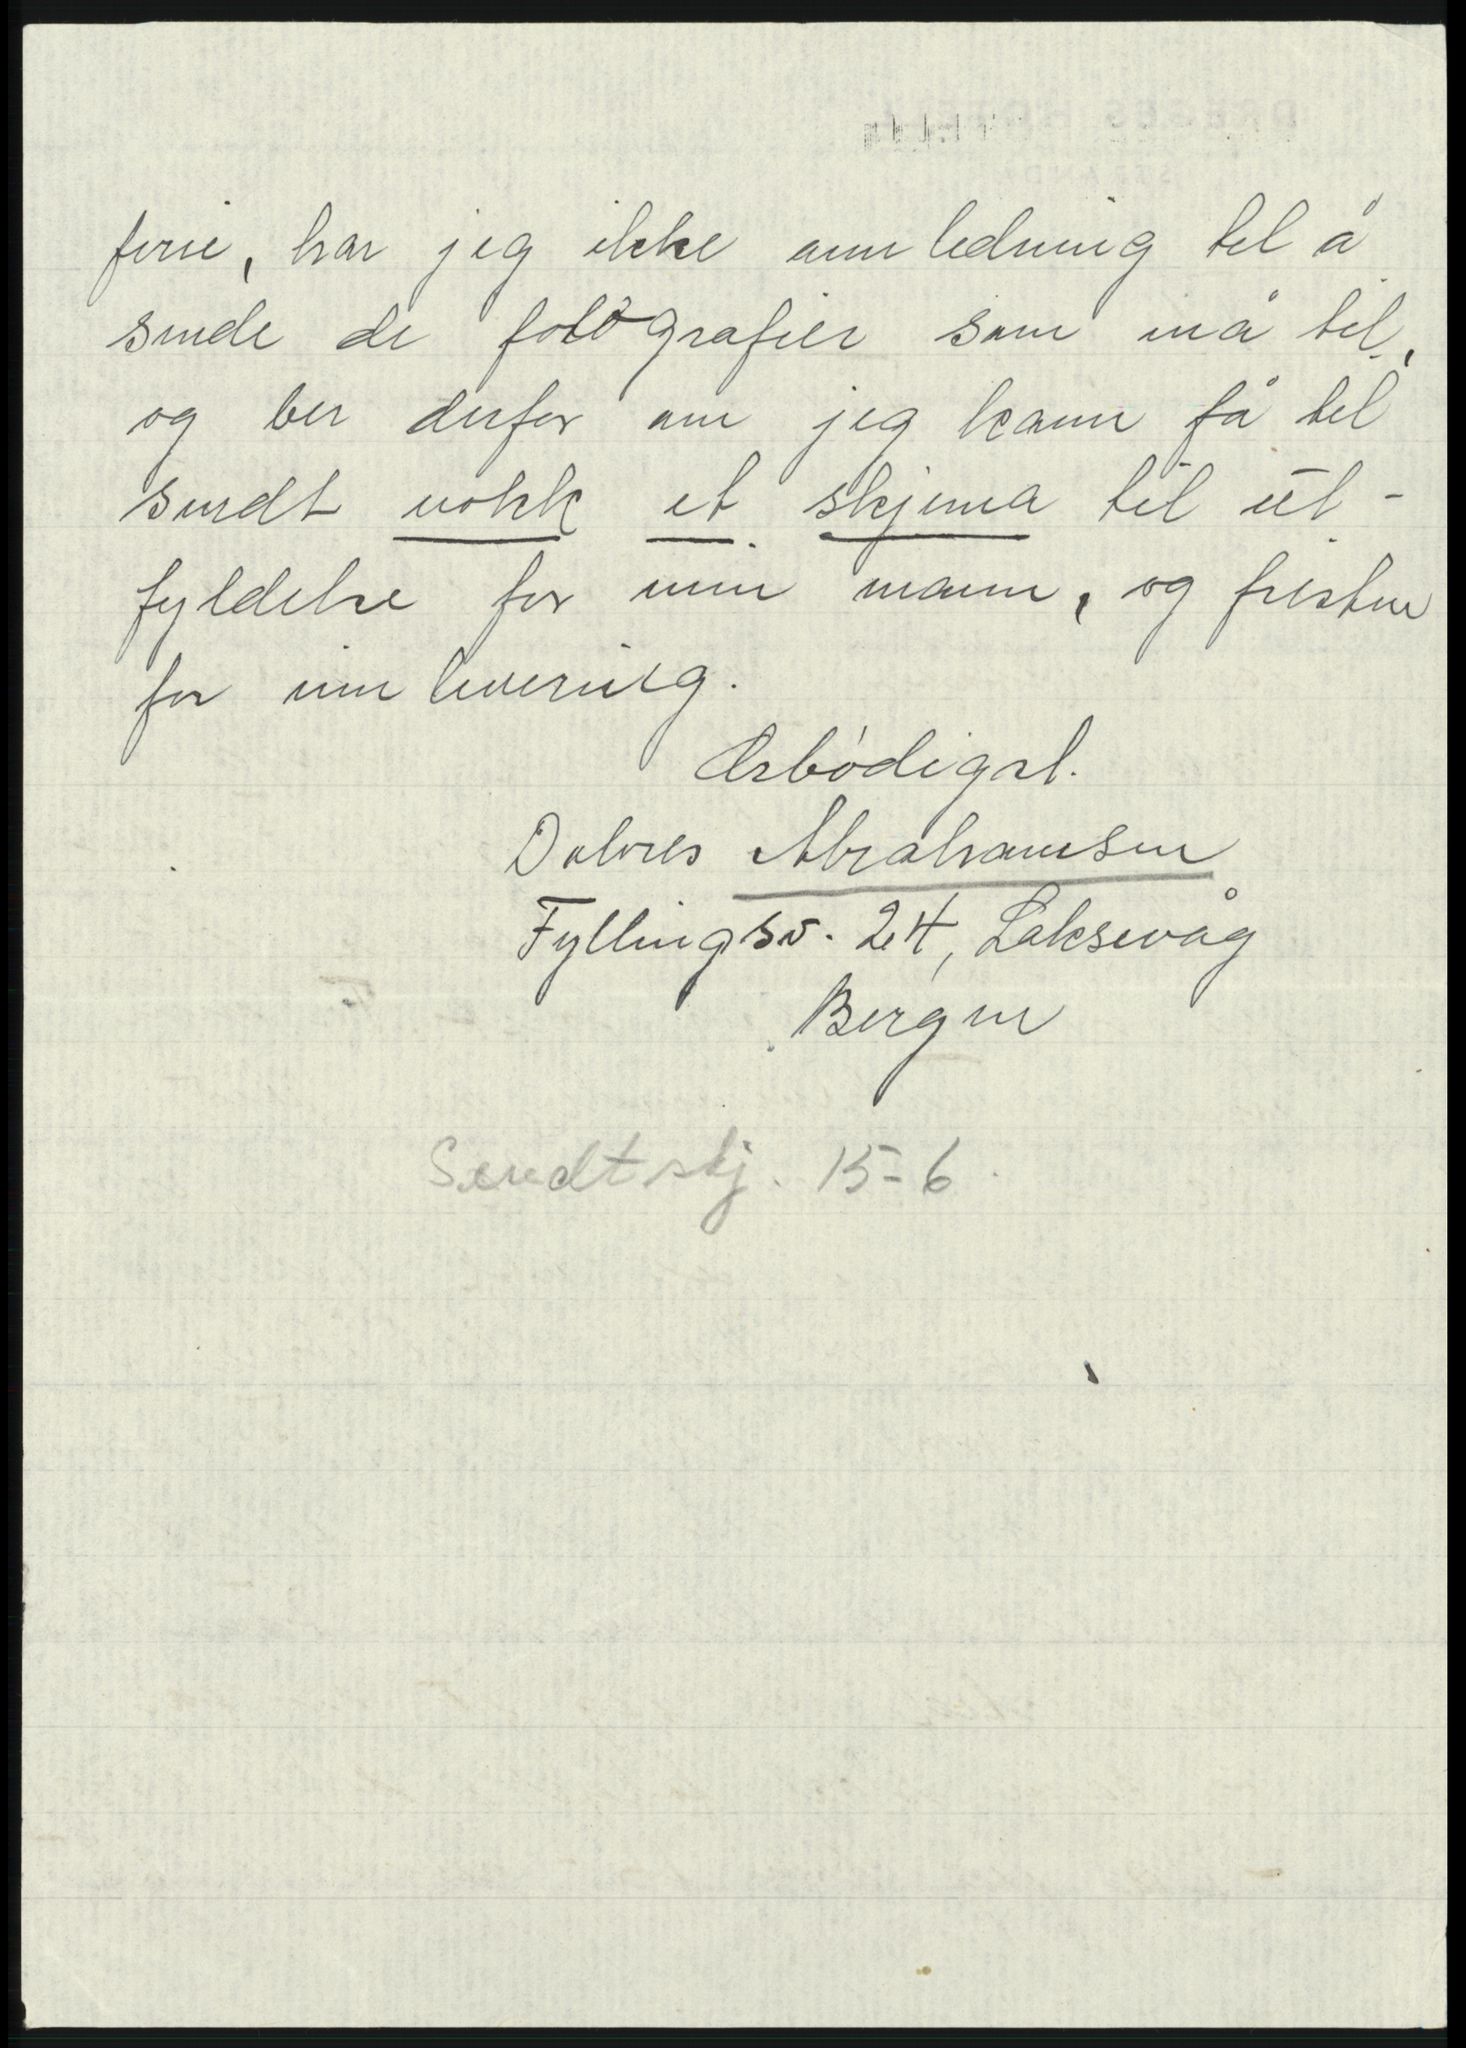 ferie, har jeg ikke annledning til å
sende de fotografier som må til,
og ber derfor om jeg kann få til
sendt nokk et skjema til ut-
fyldelse for min mann, og fristen
for innlevering.
Ærbødigst.
Dolores Abrahamsen
Fyllingsv. 24, Laksevåg
Bergen
Sendt skj. 15-6.